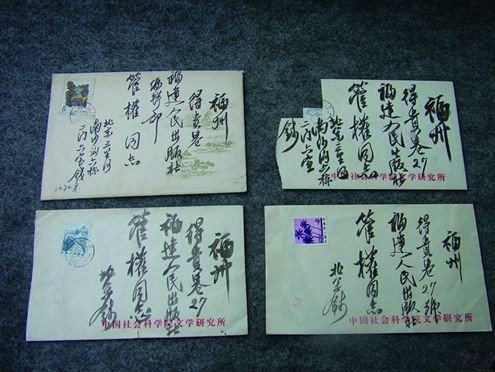 福州
得貴巷
福建人民出版社
编辑部
管權同志
北京三里河
南沙沟六栋
二门六室 錢
福州
得貴巷27
福建人民出版社
管權同志
北京三里河
南沙沟六栋
二门六室
錢
中国社会科学院文学研究所
福州
得貴巷27
福建人民出版社
管權同志
北京錢
中国社会科学院文学研究所
福州
得貴巷27號
福建人民出版社
管權同志
北京錢
中国社会科学院文学研究所